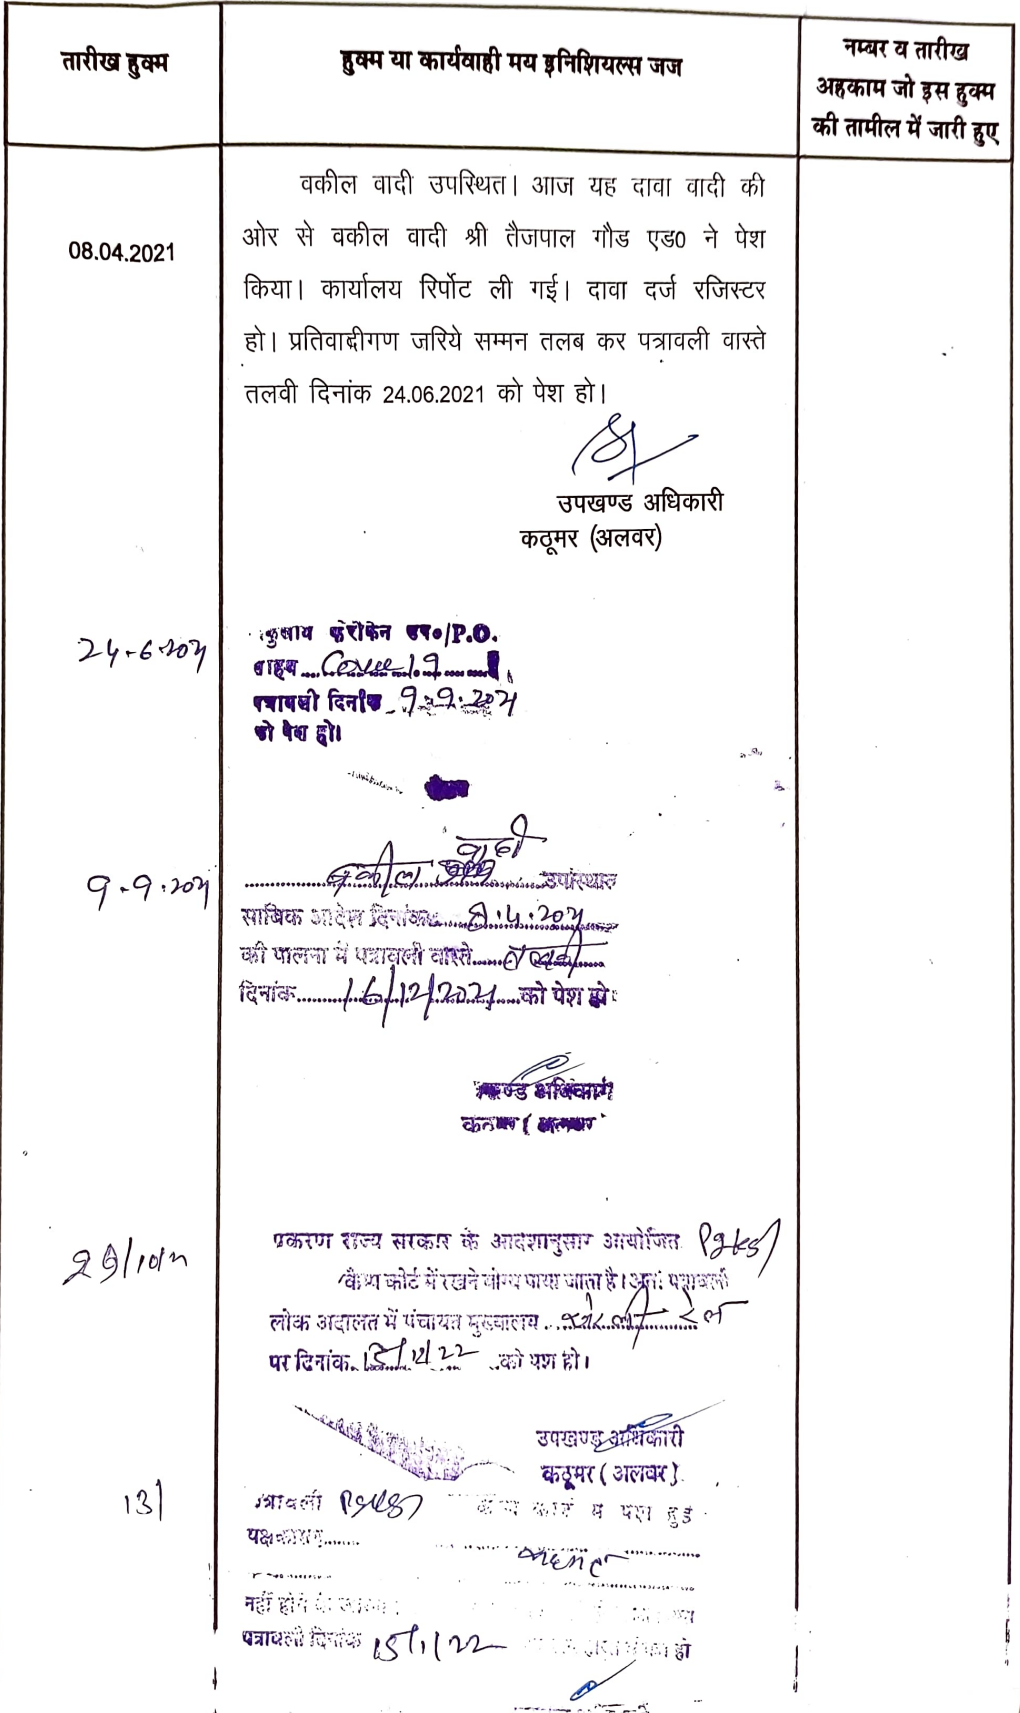 तारीख हुक्म
हुक्म या कार्यवाही मय इनिशियल्स जज
नम्बर व तारीख
अहकाम जो इस हुक्म
की तामील में जारी हुए
08.04.2021
वकील वादी उपस्थित। आज यह दावा वादी की
ओर से वकील वादी श्री तैजपाल गौड एड0 ने पेश
किया। कार्यालय रिर्पोट ली गई। दावा दर्ज रजिस्टर
हो। प्रतिवादीगण जरिये सम्मन तलब कर पत्रावली वास्ते
तलवी दिनांक 24.06.2021 को पेश हो।
उपखण्ड अधिकारी
कठूमर (अलवर)
24-6-2021
P.O.
पत्रावली दिनांक 9-9-2021
को पेश हो।
9-9-2021
वकील वादी
साबिक आदेश दिनांक 8.4.2021
की पालना में पत्रावली वास्ते तलवी
दिनांक 16/12/2021 को पेश हो
अधिकारी
प्रकरण राज्य सरकार के आदेशानुसार आयोजित
कोर्ट में रखने योग्य पाया जाता है। अतः पत्रावली
लोक अदालत में पंचायत मुख्यालय
पर दिनांक 15/12/22 को पेश हो।
उपखण्ड अधिकारी
कठूमर (अलवर)
13/
पत्रावली
नहीं होने के
पत्रावली दिनांक 15/1/22 हो